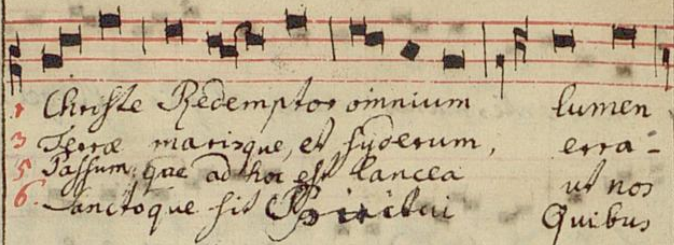 1 Christe Redemptor omnium lumen
3 Terræ marisque, et syderum, erra-
5 Passum: quæ ad hoc est lancea ut nos
6. Sanctoque sit Spiritui Quibus